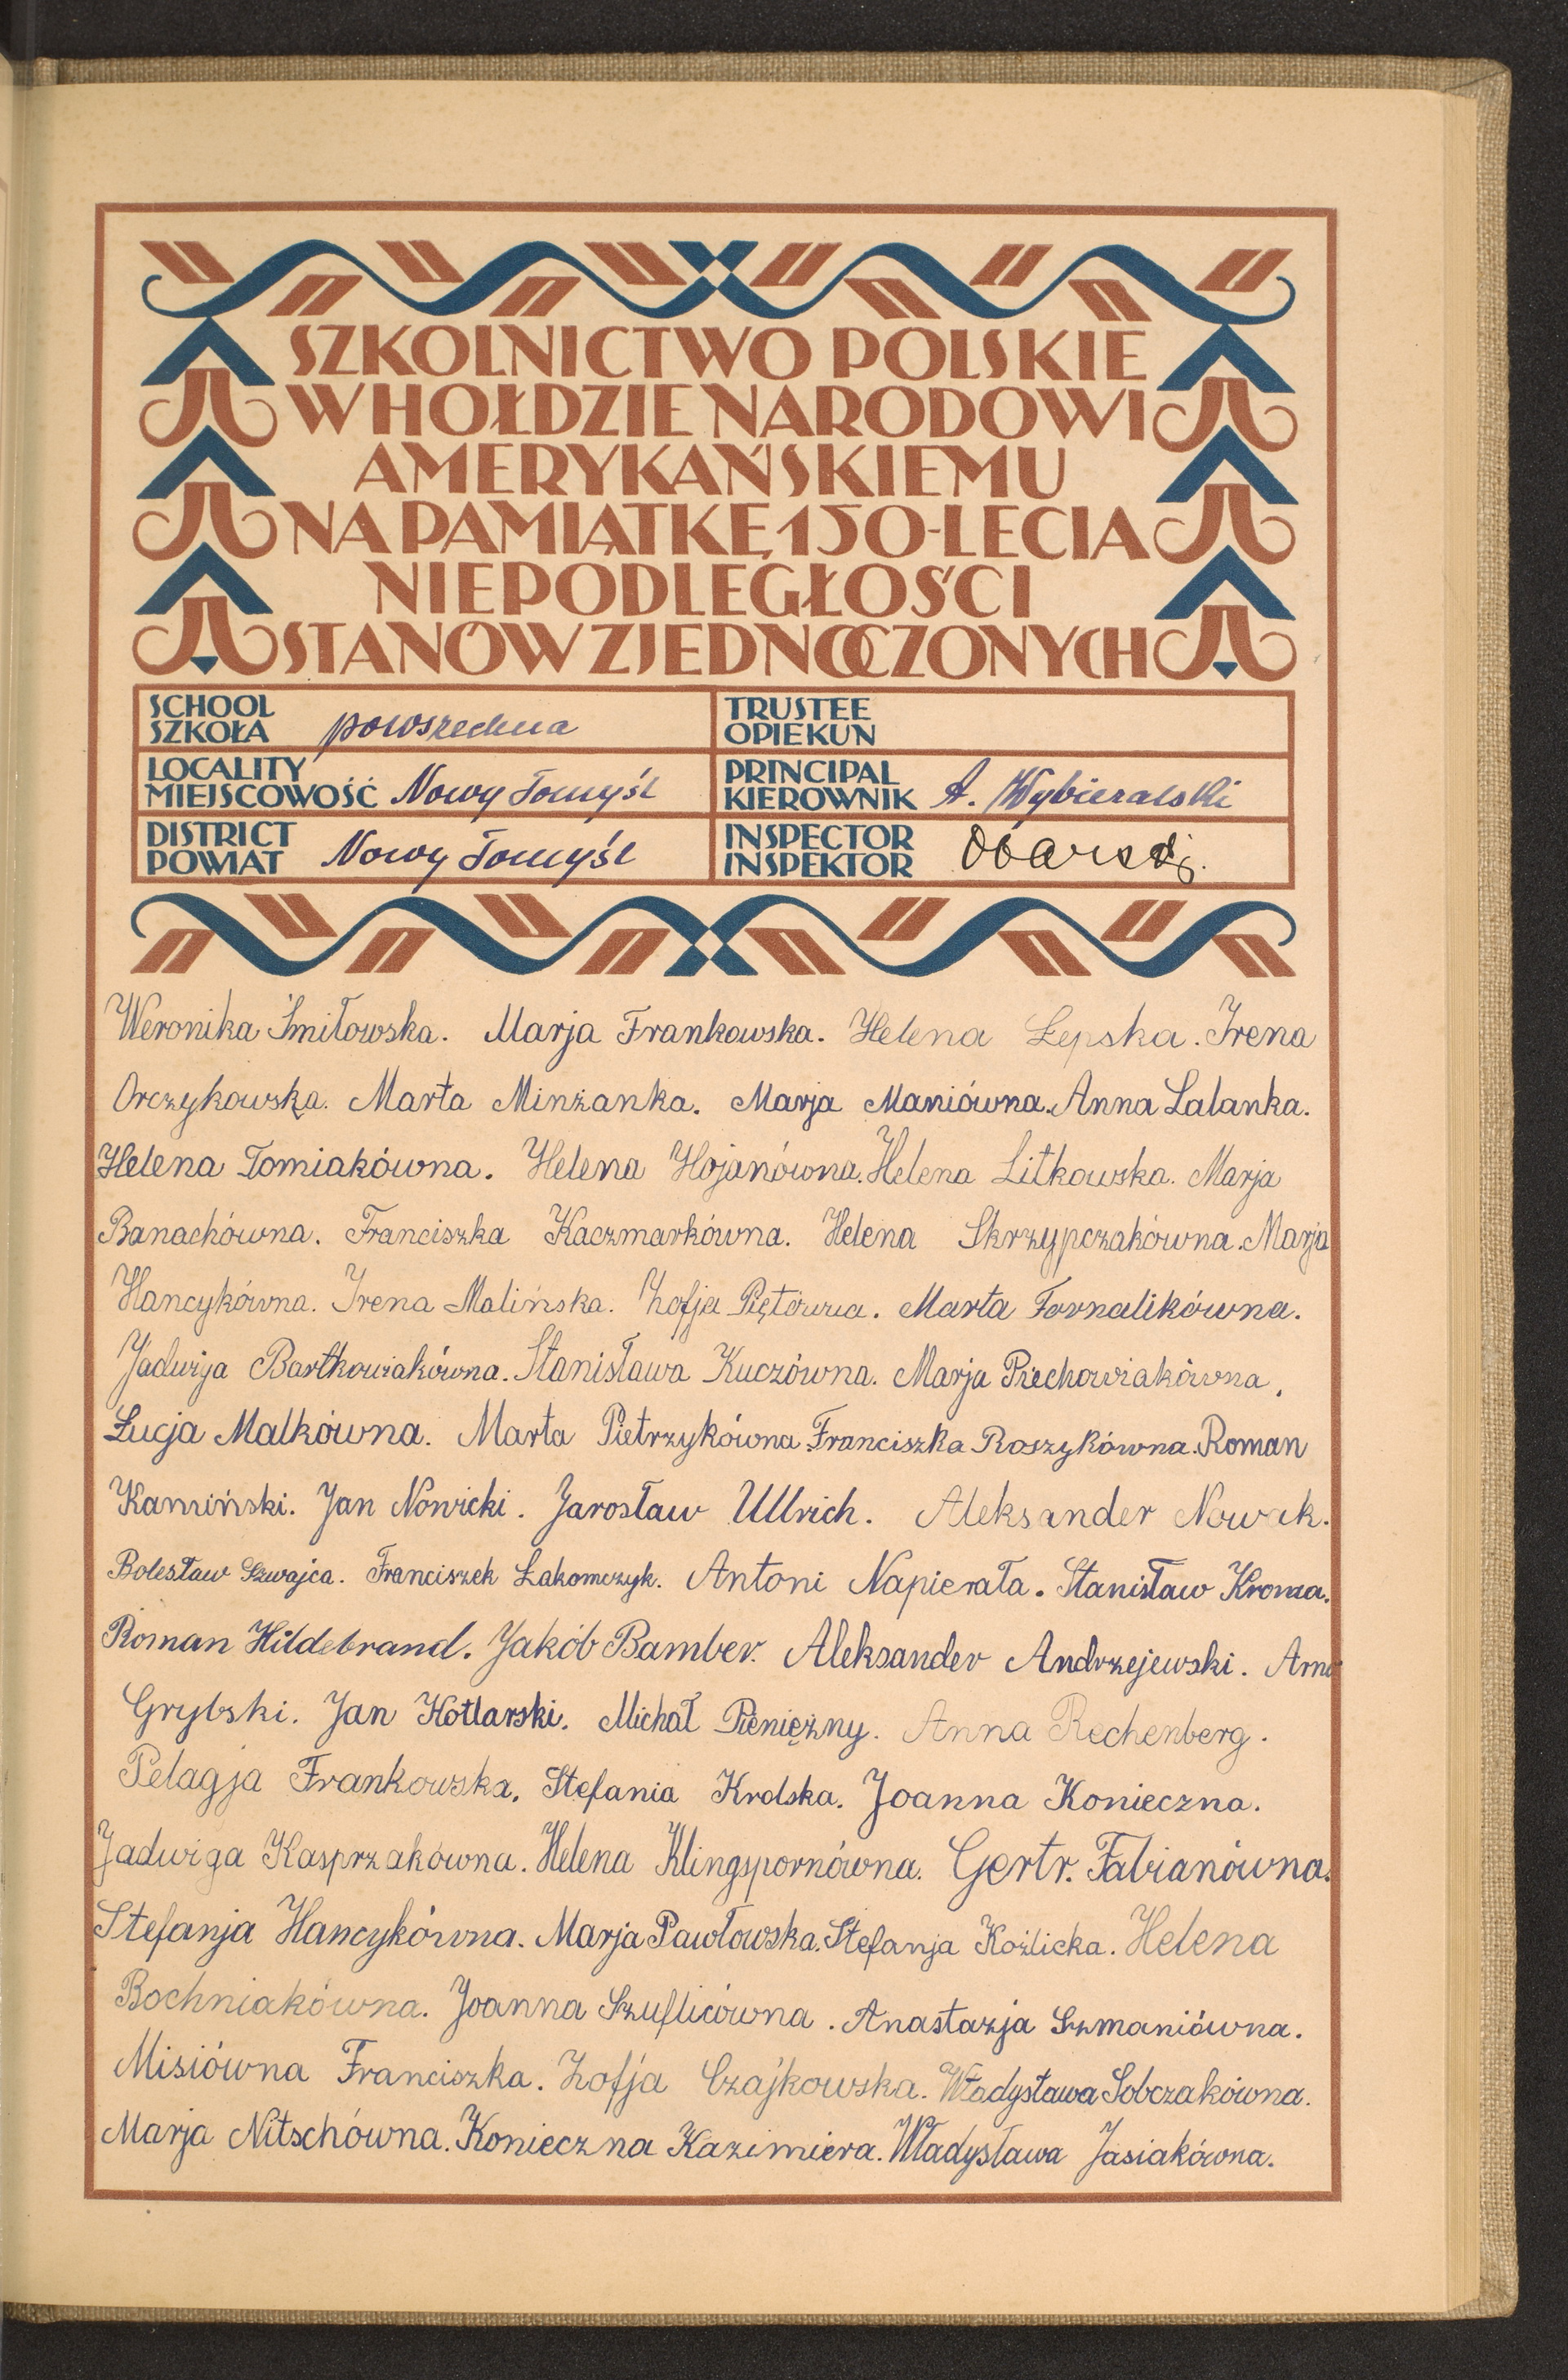 SZKOLNICTWO POLSKIE
W HOŁDZIE NARODOWI
AMERYKAŃSKIEMU
NA PAMIĄTKĘ 150-LECIA
NIEPODLEGŁOŚCI
STANÓW ZJEDNOCZONYCH
SCHOOL
SZKOŁA powszechna
TRUSTEE
OPIEKUN
LOCALITY
MIEJSCOWOŚĆ Nowy Tomyśl
PRINCIPAL
KIEROWNIK A. Wybieralski
DISTRICT
POWIAT Nowy Tomyśl
INSPECTOR
INSPEKTOR
Weronika Śmiłowska. Marja Frankowska. Helena Łepska. Irena
Orczykowska. Marta Minżanka. Marja Maniówna. Anna Lalanka.
Helena Tomiakówna. Helena Hojanówna. Helena Litkowska. Marja
Banachówna. Franciszka Kaczmarkówna. Helena Skrzypczakówna. Marja
Hancykówna. Irena Malińska. Zofja Piętówna. Marta Fornalikówna.
Jadwiga Bartkowiakówna. Stanisława Kuczówna. Marja Piechowiakówna.
Łucja Malkówna. Marta Pietrzykówna. Franciszka Roszykówna. Roman
Kamiński. Jan Nowicki. Jarosław Ullrich. Aleksander Nowak.
Bolesław Szwajca. Franciszek Łakomczyk. Antoni Napierała. Stanisław Kroma.
Roman Hildebrand. Jakób Bamber. Aleksander Andrzejewski. Arno
Grybski. Jan Kotlarski. Michał Pieniężny. Anna Rechenberg.
Pelagja Frankowska. Stefania Krolska. Joanna Konieczna.
Jadwiga Kasprzakówna. Helena Klingspornówna. Gertr. Fabianówna.
Stefanja Hancykówna. Marja Pawłowska. Stefanja Koźlicka. Helena
Bochniakówna. Joanna Szuflicówna. Anastazja Szmaniówna.
Misiówna Franciszka. Zofja Czajkowska. Władysława Sobczakówna.
Marja Nitschówna. Konieczna Kazimiera. Władysława Jasiakówna.